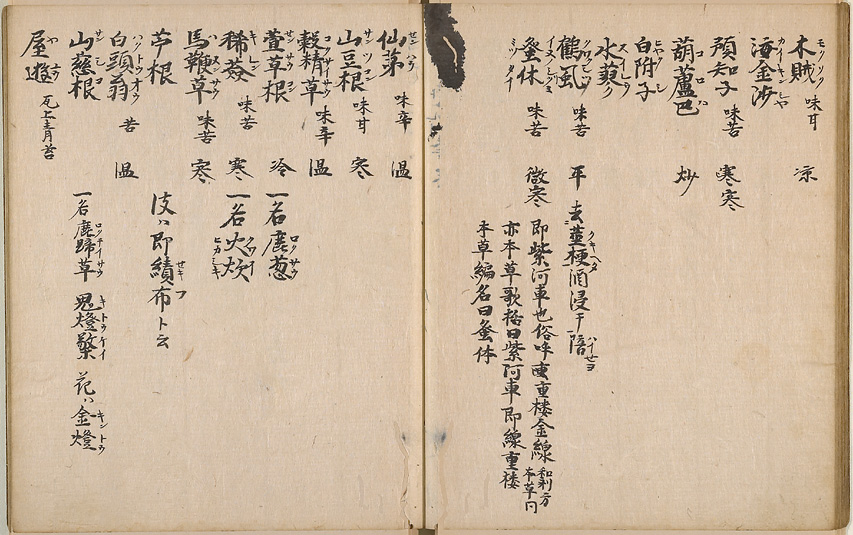 木賊 モクソク 味甘 涼
海金沙 カイキンシヤ
預知子 味苦 寒寒
葫蘆巴 コロハ 炒
白附子 ヒヤクシ
水萍 スイ
鶴風 クワクヒツ 味苦 平 去莖梗酒浸干焙
蚤休 味苦 微寒 即紫河車也俗呼重楼金線 和剤方本草門
亦本草歌括曰紫河車即線重楼
本草編名曰蚤休
仙茅 センハウ 味辛 温
山豆根 サンツコン 味甘 寒
穀精草 コクサイサウ 味辛 温
萱草根 冷 一名鹿葱 ロクサウ
稀薟 キレン 味苦 寒 一名火炊
馬鞭草 味苦 寒
芦根 即績布ト云
白頭翁 ハクトウオウ 苦 温
山慈根 サンシコン 一名鹿蹄草 ロクテイサウ 鬼燈檠 キトウケイ 花ハ金燈 キントウ
屋遊 瓦上青苔